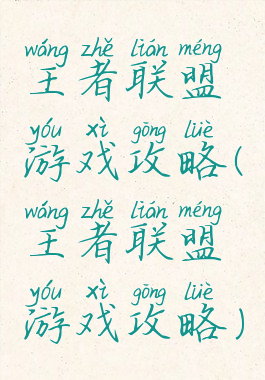 wáng zhě lián méng
王者联盟
yóu xì gōng lüè
游戏攻略(
wáng zhě lián méng
王者联盟
yóu xì gōng lüè
游戏攻略)